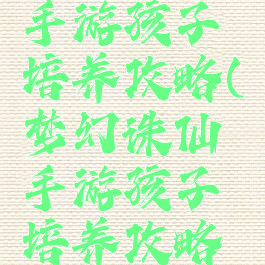 手游孩子
培养攻略(
梦幻诛仙
手游孩子
培养攻略